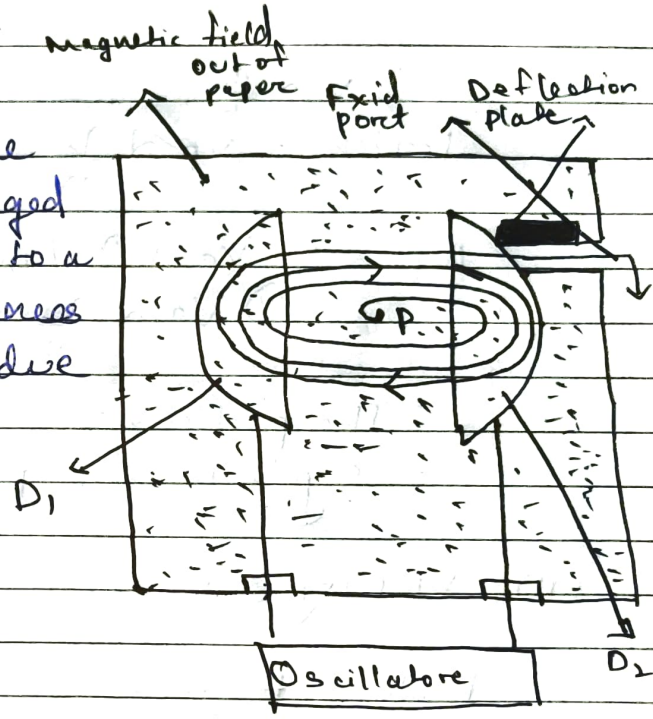 Magnetic field
out of
paper
Exid
port
Deflection
plate
ged
to a
due
P
D1
D2
Oscillatore